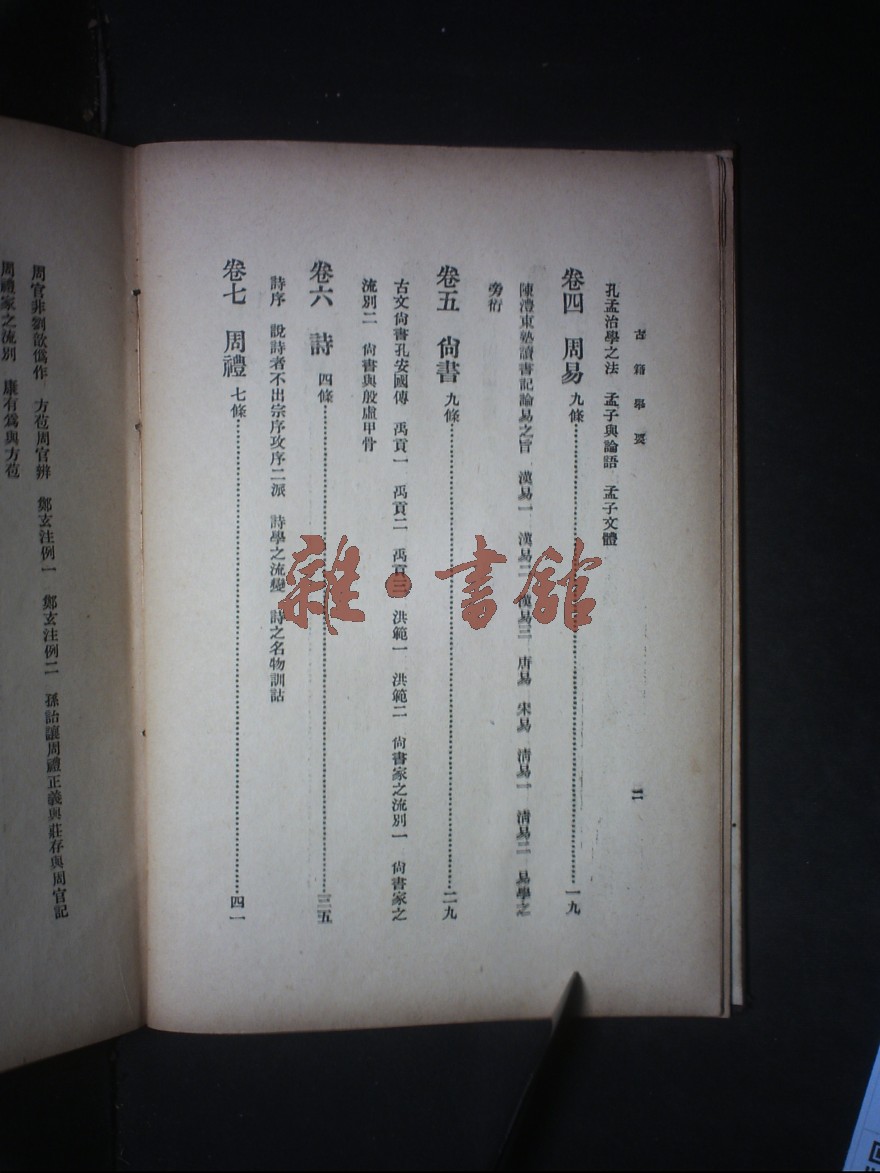 古籍舉要
二
孔孟治學之法　孟子與論語　孟子文體
卷四　周易 九條……一九
陳澧東塾讀書記論易之旨　漢易一　漢易二　漢易三　唐易　宋易　清易一　清易二　易學之
旁衍
卷五　尚書 九條……二九
古文尚書孔安國傳　禹貢一　禹貢二　禹貢三　洪範一　洪範二　尚書家之流別一　尚書家之
流別二　尚書與殷虛甲骨
卷六　詩 四條……三五
詩序　說詩者不出宗序攻序二派　詩學之流變　詩之名物訓詁
卷七　周禮 七條……四一
周官非劉歆僞作　方苞周官辨　鄭玄注例一　鄭玄注例二　孫詒讓周禮正義與莊存與周官記
周禮家之流別　康有爲與方苞
雜·書館